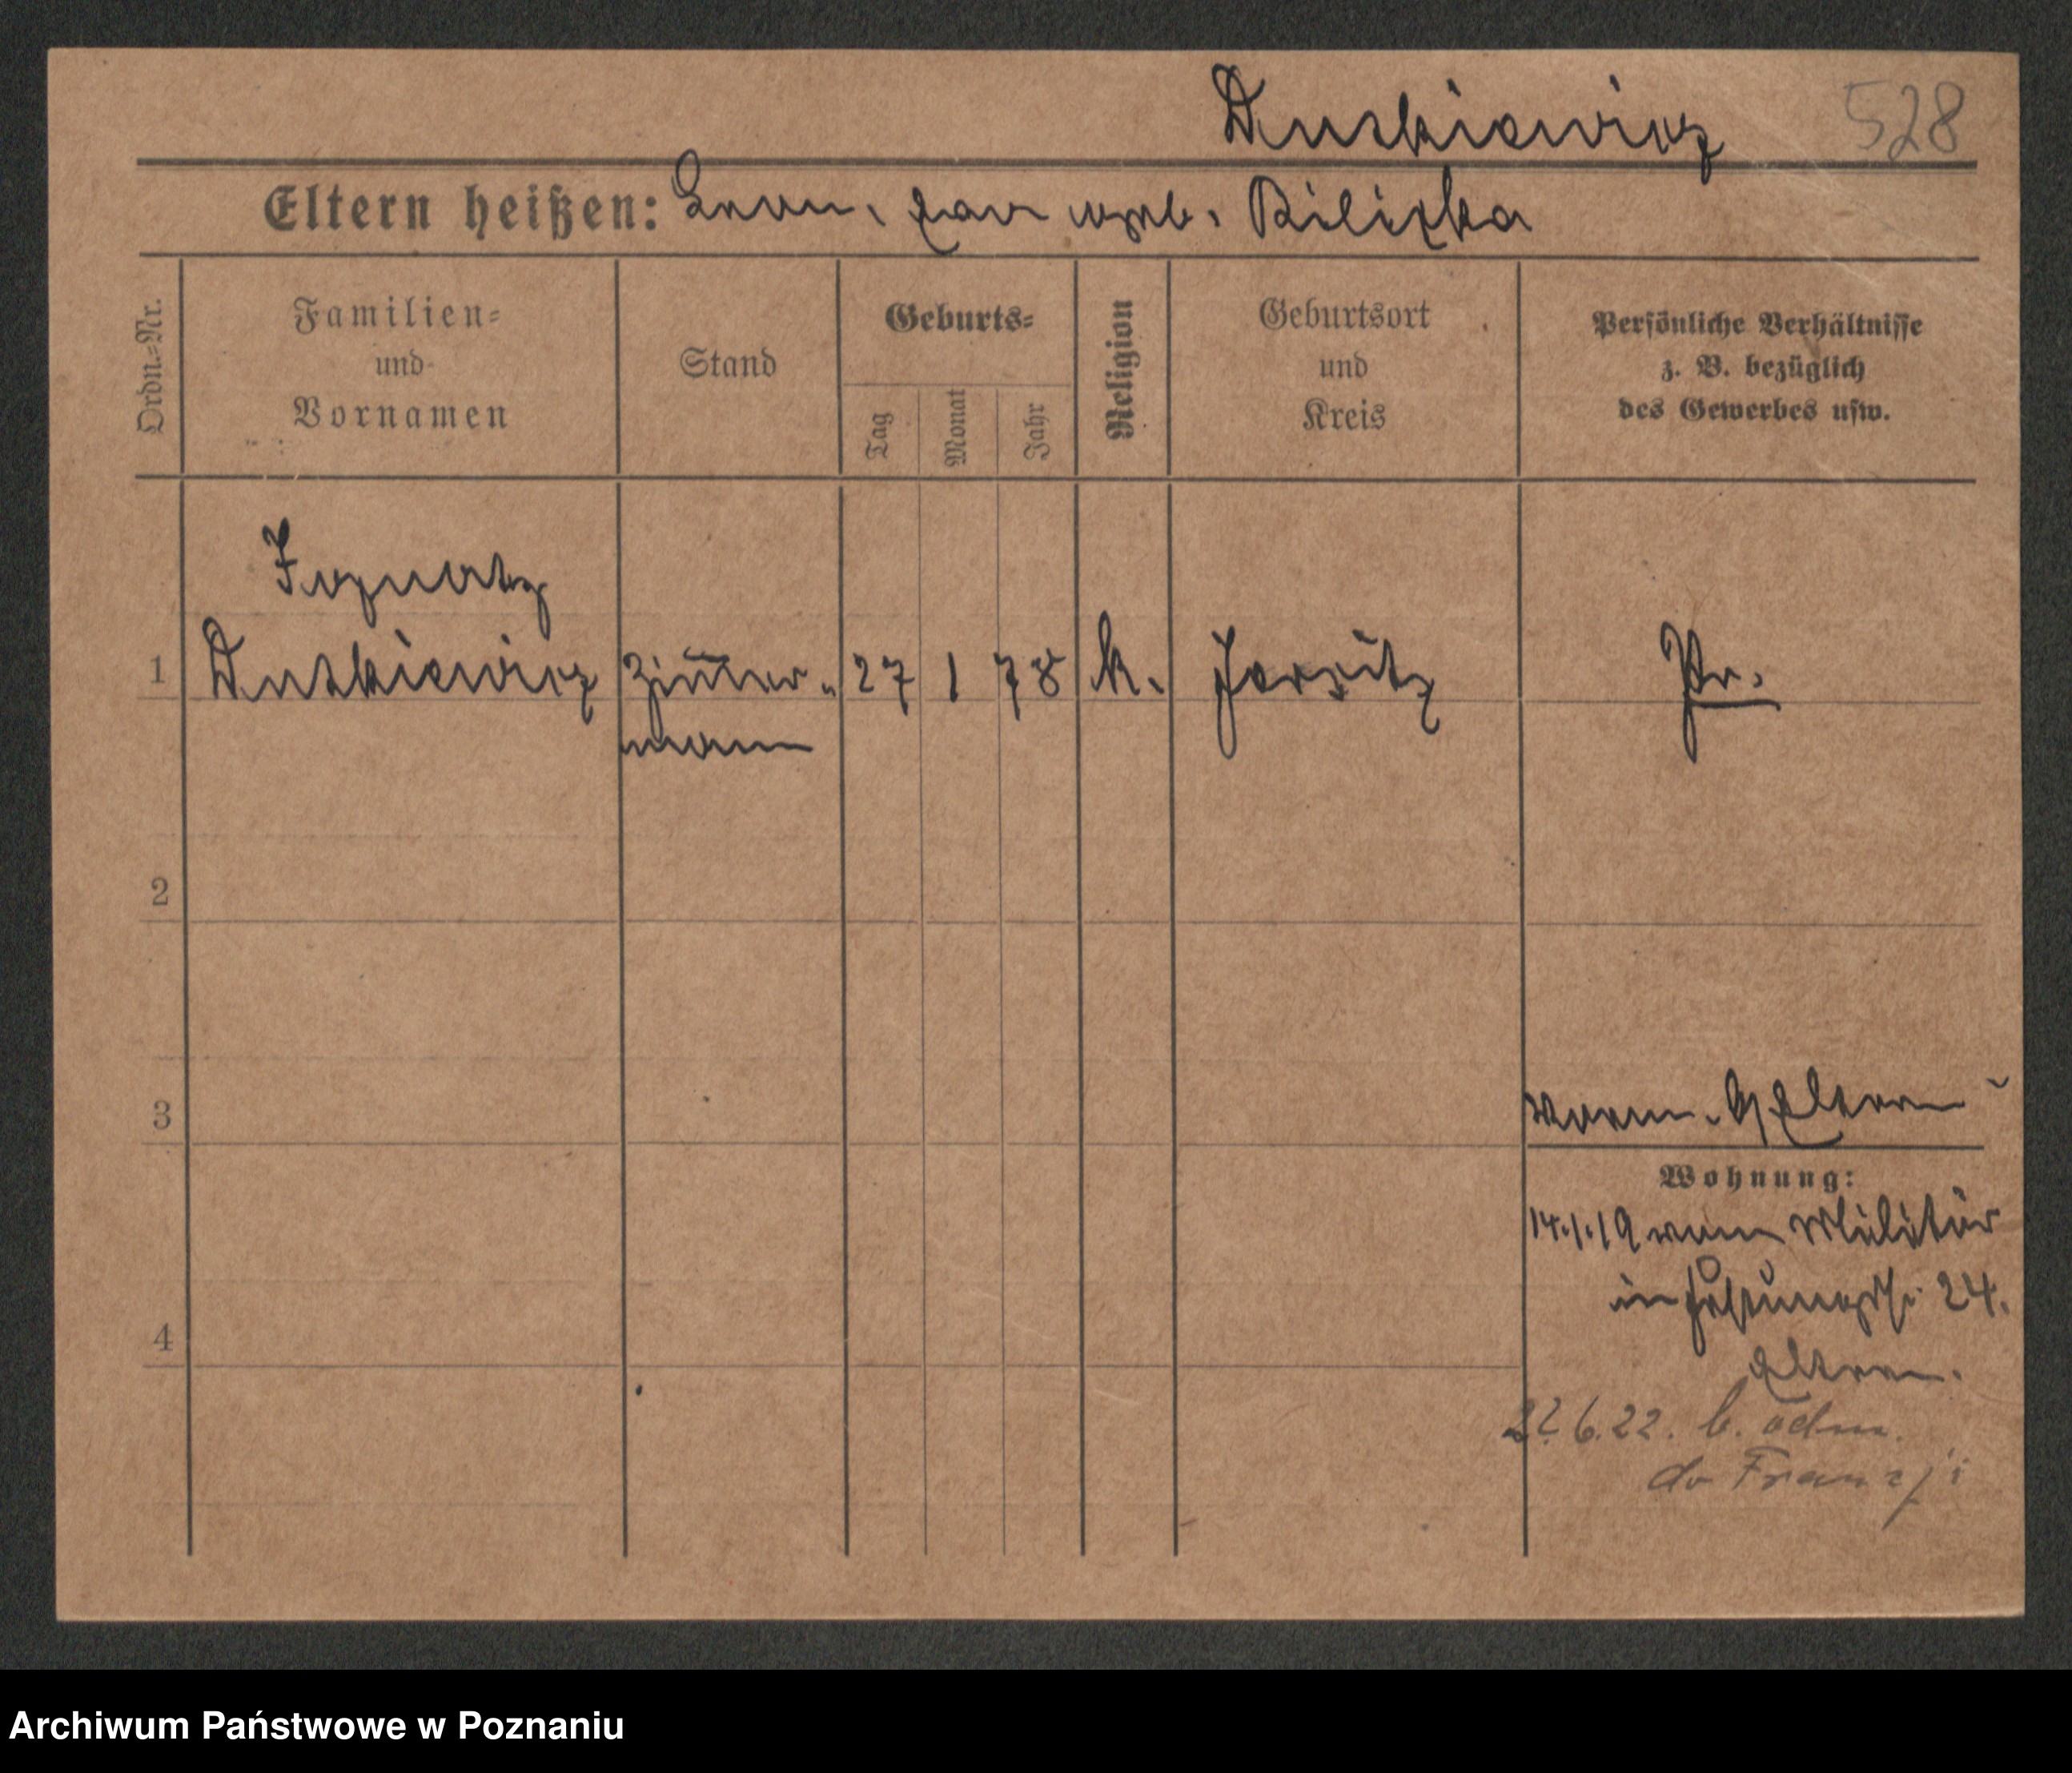 Duszkiewicz 528
Eltern heißen: geb. Bilizka
Ordn.-Nr.
Familien-
und
Vornamen
Stand
Geburts-
Tag
Monat
Jahr
Religion
Geburtsort
und
Kreis
Persönliche Verhältnisse
z. B. bezüglich
des Gewerbes usw.
Ignatz
1 Duszkiewicz Zimmer- 27 1 78 k. Jersitz Pr.
mann
2
3
Eltern
Wohnung:
14.1.19 vom Militär
in 24.
Eltern.
6.22. b. odm.
do Francji
4
Archiwum Państwowe w Poznaniu